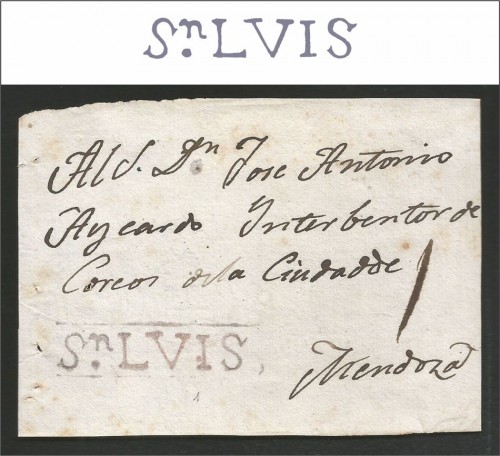 Sn. LVIS
Al S. Dn Jose Antonio
Aycardo Interbentor de
Coreos de la Ciudad de
Mendoza
Sn. LVIS